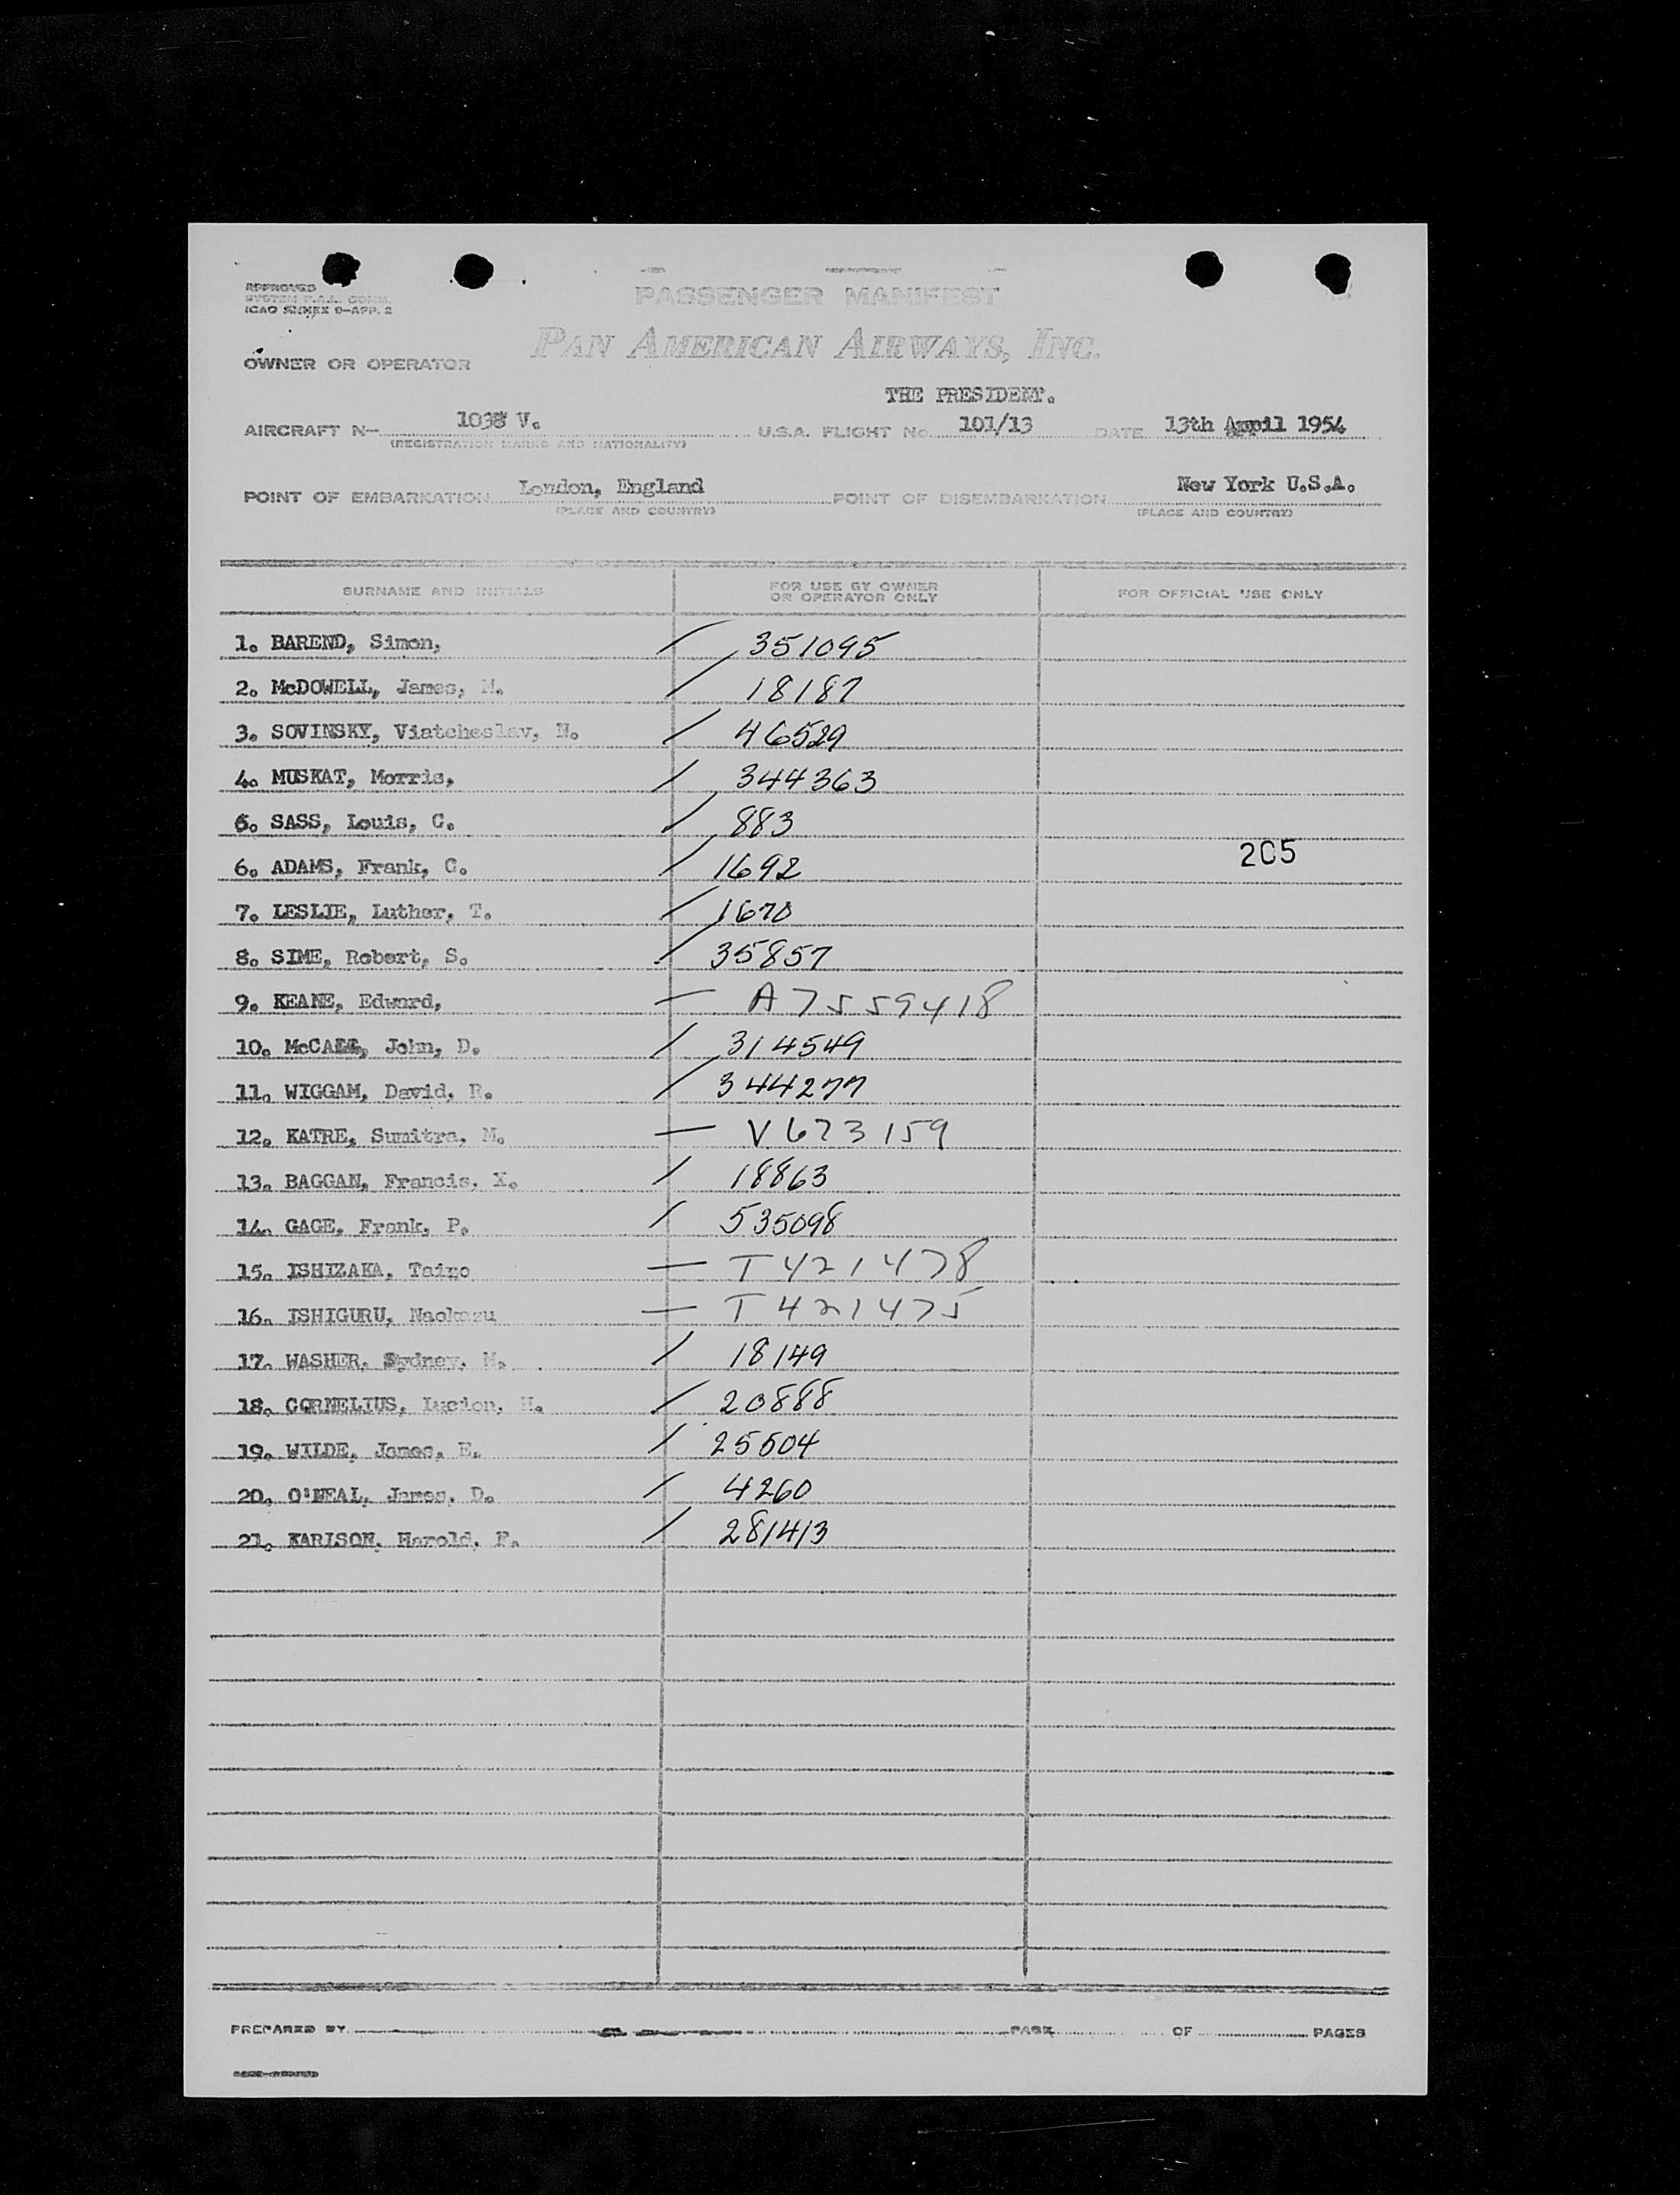 APPROVED
SYSTEM F.A.L. COMM.
ICAO ANNEX 9-APP. 2
PASSENGER MANIFEST
PAN AMERICAN AIRWAYS, INC.
OWNER OR OPERATOR
THE PRESIDENT.
AIRCRAFT N- 1038 V. U.S.A. FLIGHT No. 101/13 DATE 13th April 1954
(REGISTRATION MARKS AND NATIONALITY)
POINT OF EMBARKATION London, England POINT OF DISEMBARKATION New York U.S.A.
(PLACE AND COUNTRY) (PLACE AND COUNTRY)
SURNAME AND INITIALS FOR USE BY OWNER OR OPERATOR ONLY FOR OFFICIAL USE ONLY
1. BAREND, Simon, / 351095
2. McDOWELL, James, M. / 18187
3. SOVINSKY, Viatcheslav, N. / 46529
4. MUSKAT, Morris, / 344363
5. SASS, Louis, C. / 883
205
6. ADAMS, Frank, G. / 1692
7. LESLIE, Luther, T. / 1670
8. SIME, Robert, S. / 35857
9. KEANE, Edward, — A7559418
10. McCALL, John, D. / 314549
11. WIGGAM, David, R. / 344277
12. KATRE, Sumitra, M. — V673159
13. BAGGAN, Francis, X. / 18863
14. GAGE, Frank, P. / 535098
15. ISHIZAKA, Taizo — T421478
16. ISHIGURU, Naokazu — T421475
17. WASHER, Sydney, M. / 18149
18. CORNELIUS, Lucion, H. / 20888
19. WILDE, James, E. / 25504
20. O'NEAL, James, D. / 4260
21. KARLSON, Harold, F. / 281413
PREPARED BY PAGE OF PAGES